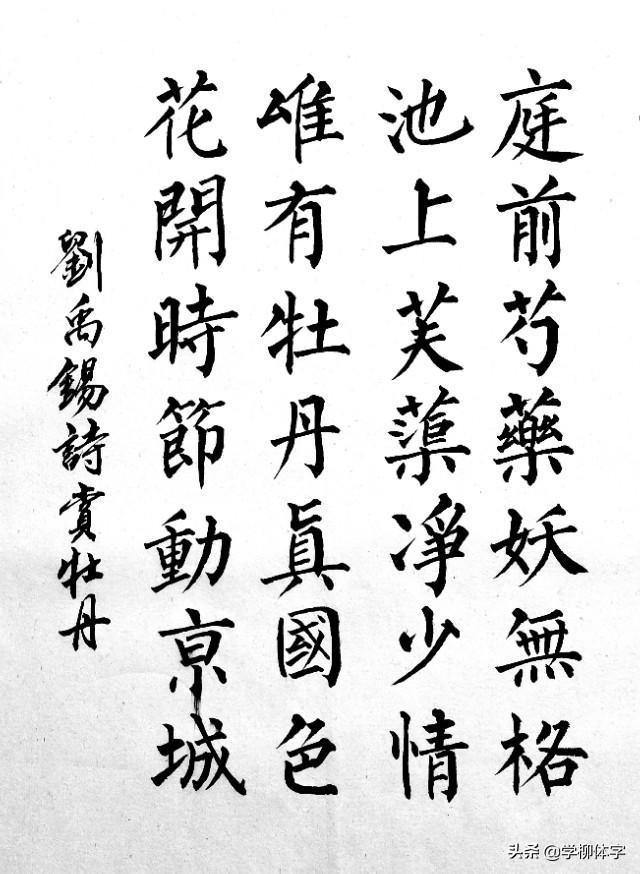 庭前芍藥妖無格
池上芙蕖凈少情
唯有牡丹眞國色
花開時節動亰城
劉禹錫詩賞牡丹
头条 @学柳体字